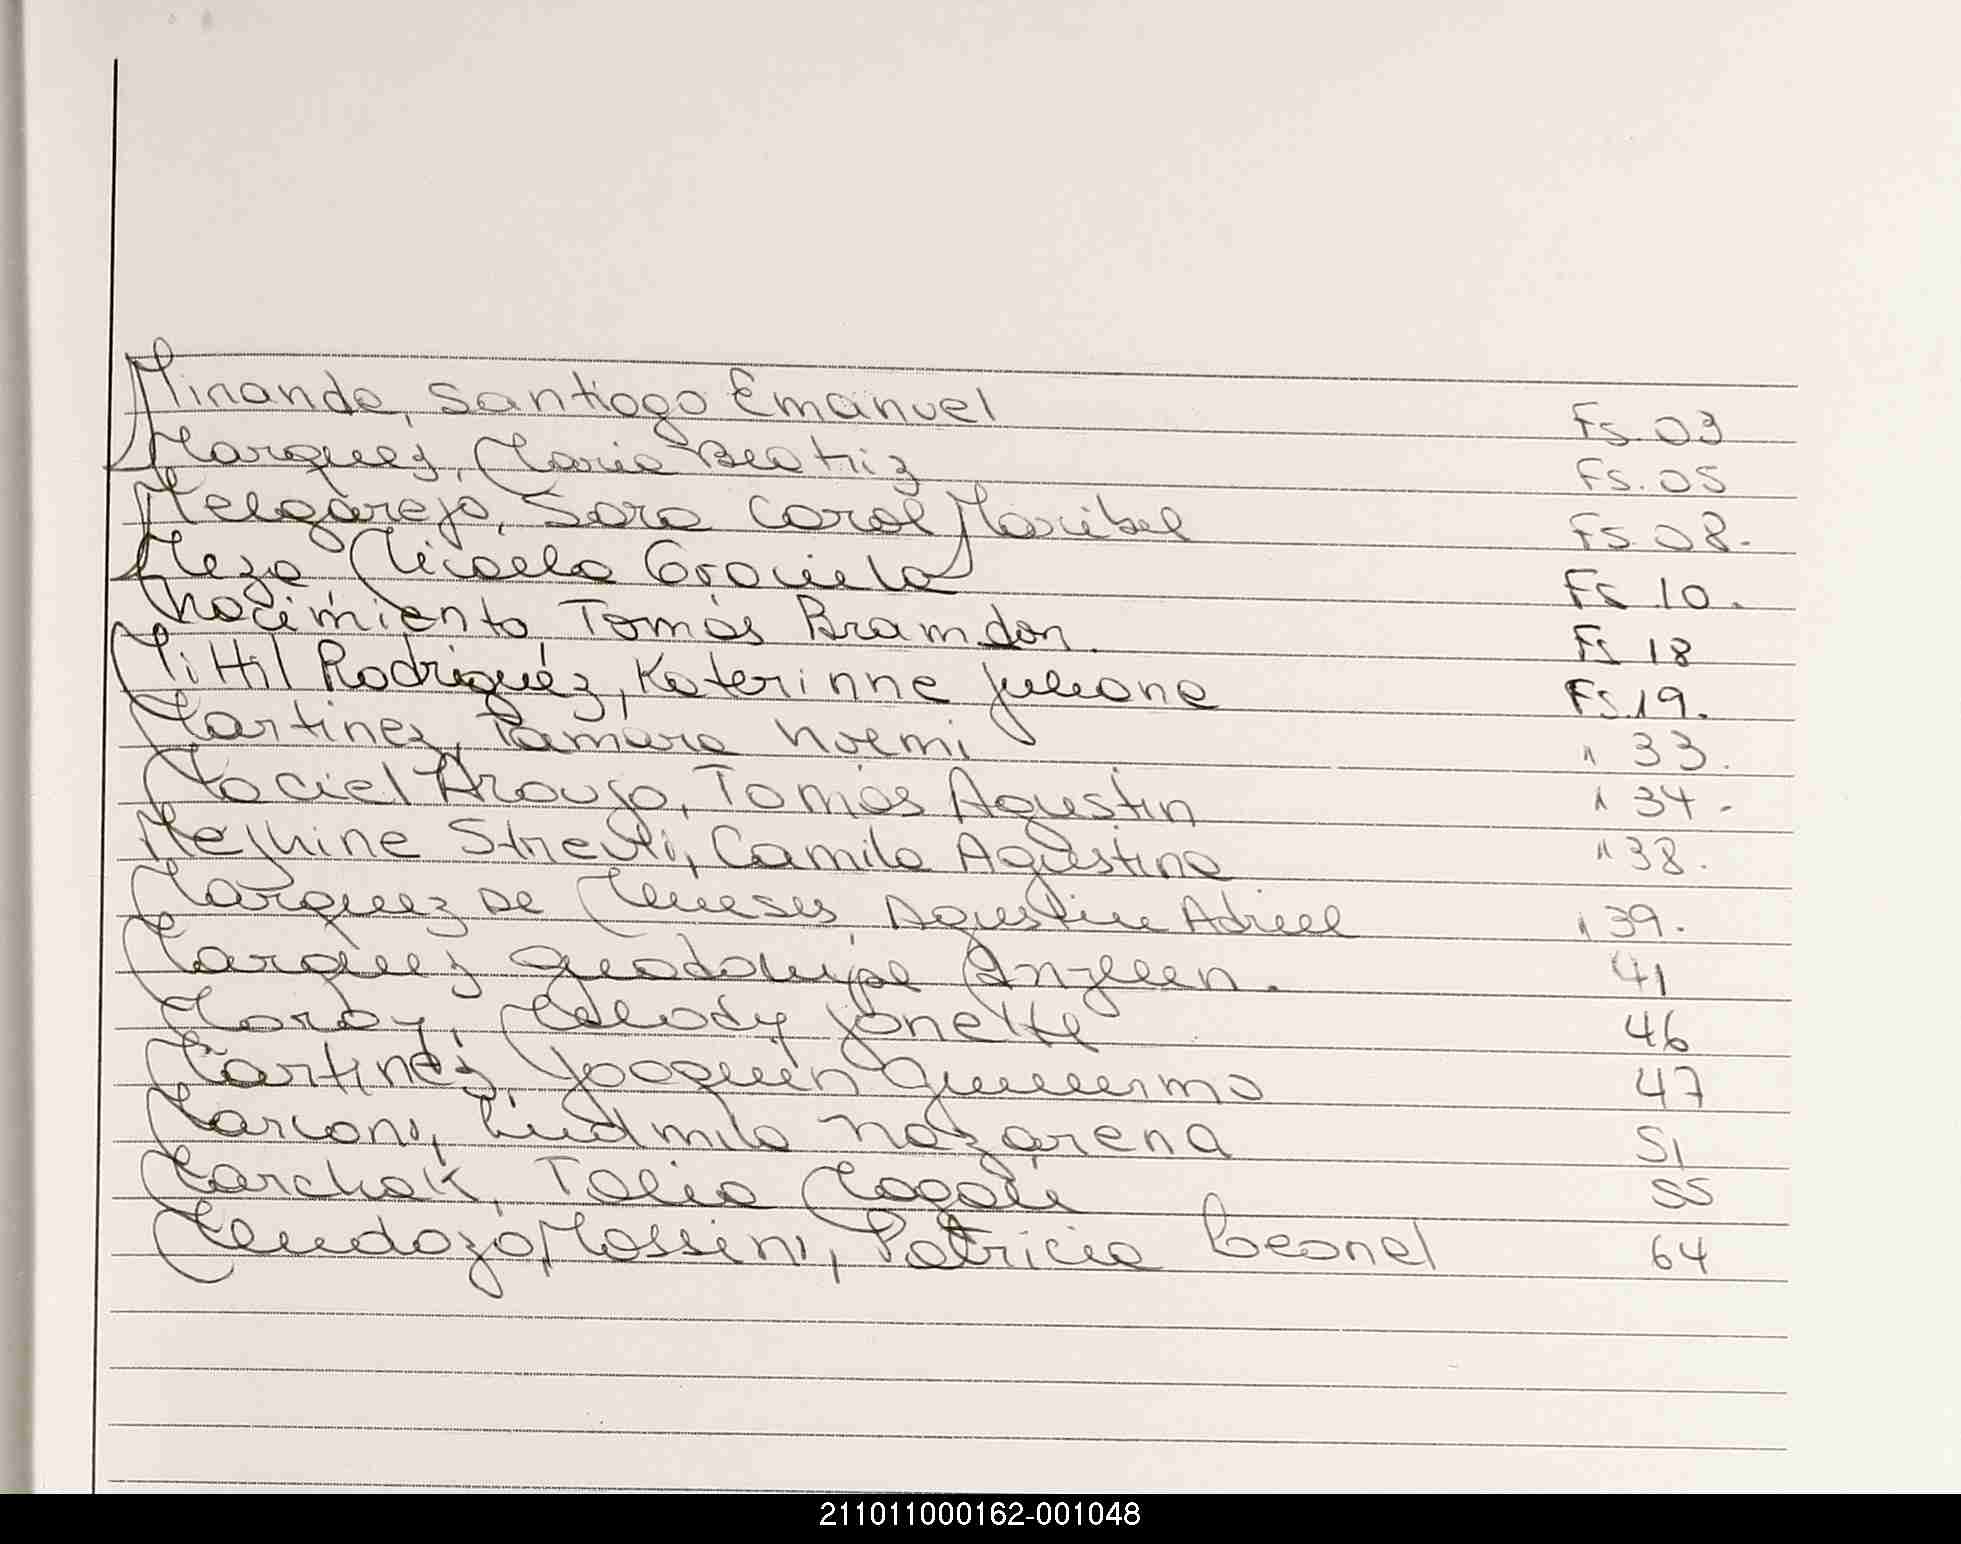 Miranda, Santiago Emanuel Fs. 03
Marquez, Maria Beatriz Fs. 05
Melgarejo, Sara Carol Maribel Fs. 08.
Meza Micaela Graciela Fs 10.
Tomás Bramdon. Fs 18
Mittil Rodriguez, Katerinne Juliana Fs. 19.
Martinez, Tamara Noemi " 33.
Maciel Araujo, Tomás Agustin " 34.
Camila Agustina " 38.
Marquez De Meneses, Agustin Adriel " 39.
Marquez Guadalupe 41
Melody Yanette 46
Martinez, Joaquin Guillermo 47
Marconi, Ludmila Nazarena 51
Marchak, Talia Magali 55
Mendoza Mossini, Patricio Leonel 64
211011000162-001048